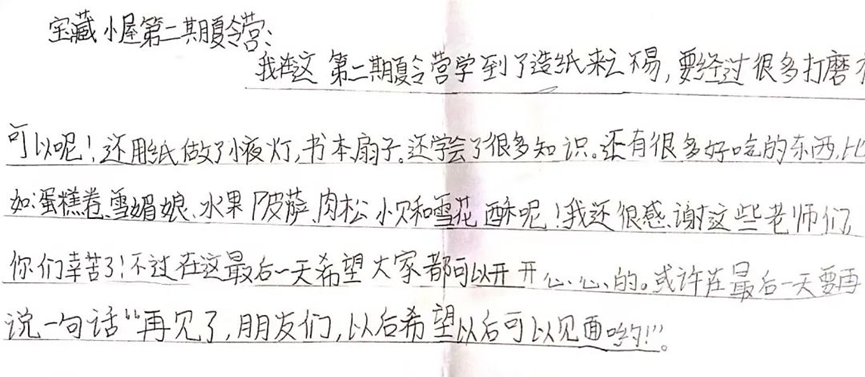 宝藏小屋第二期夏令营:
我在这第二期夏令营学到了造纸来之不易,要经过很多打磨才
可以呢!还用纸做了小夜灯,书本扇子。还学会了很多知识。还有很多好吃的东西,比
如:蛋糕卷、雪媚娘、水果披萨、肉松小贝和雪花酥呢!我还很感谢这些老师们,
你们辛苦了!不过在这最后一天希望大家都可以开开心心的。或许在最后一天要再
说一句话“再见了,朋友们,以后希望以后可以见面哟!”。